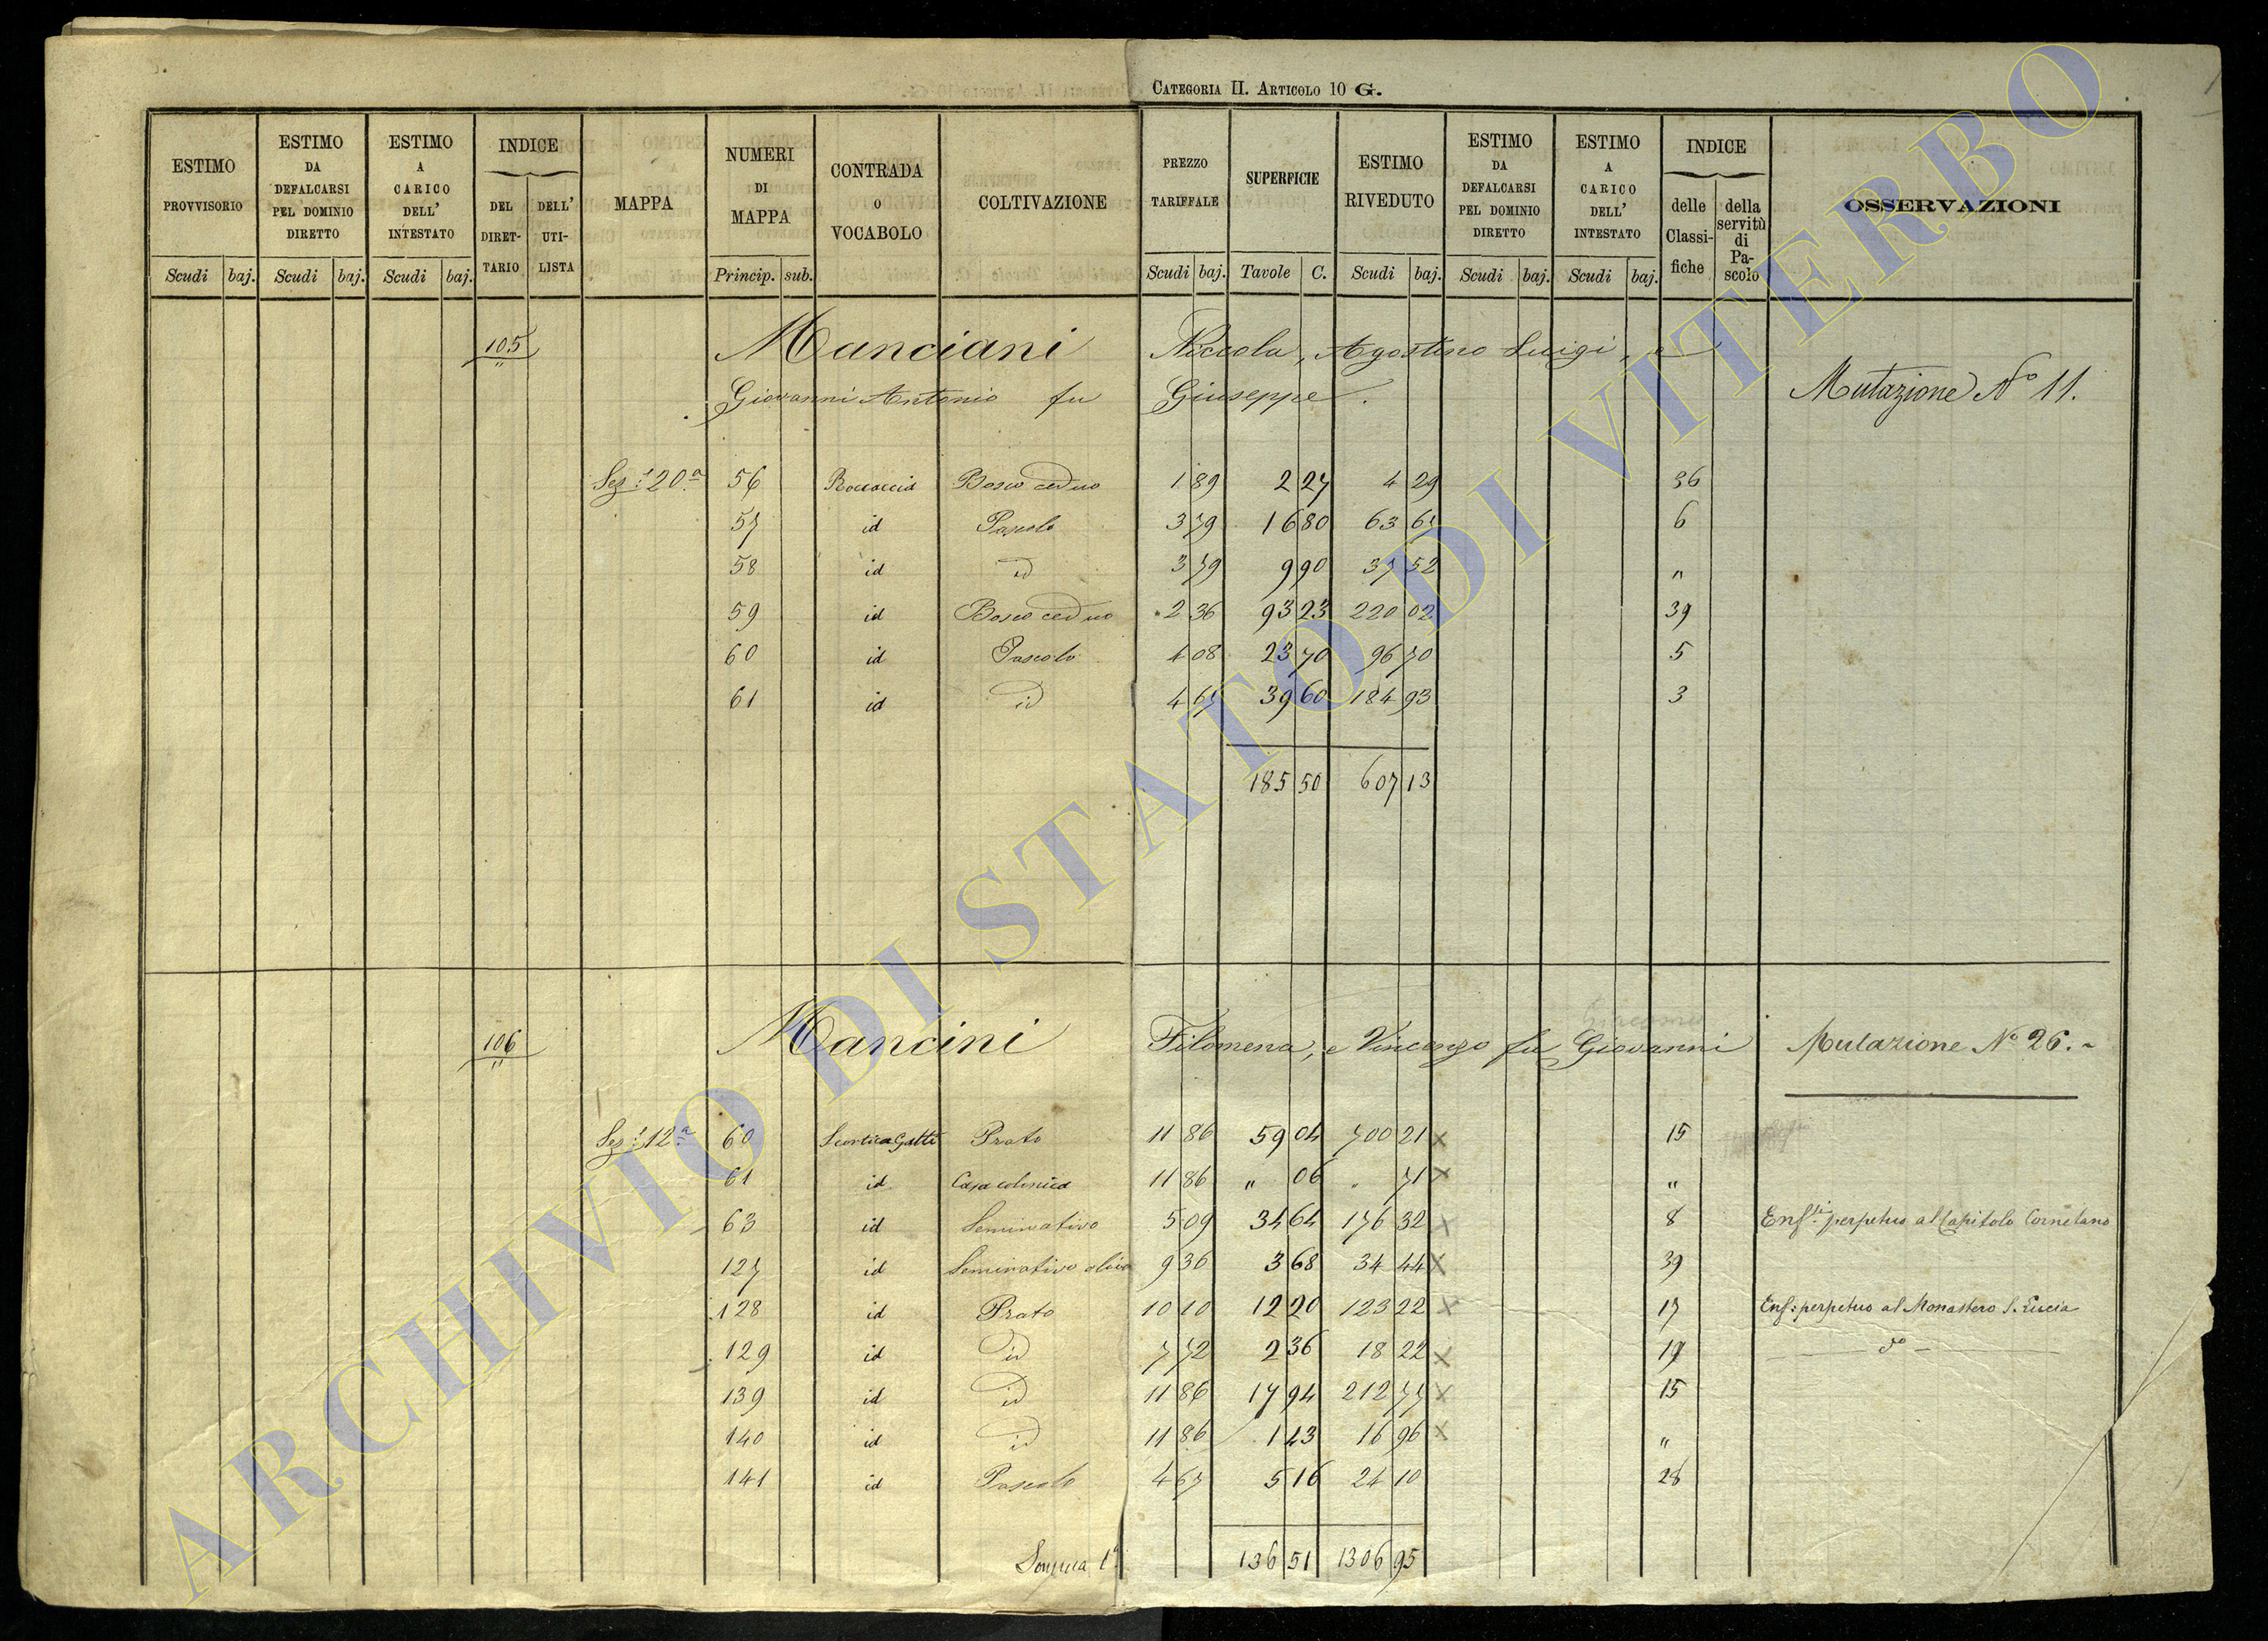 CATEGORIA II. ARTICOLO 10 G.
ESTIMO PROVVISORIO
ESTIMO DA DEFALCARSI PEL DOMINIO DIRETTO
ESTIMO A CARICO DELL' INTESTATO
INDICE
DEL DIRET-TARIO
DELL' UTI-LISTA
MAPPA
NUMERI DI MAPPA
CONTRADA O VOCABOLO
COLTIVAZIONE
PREZZO TARIFFALE
SUPERFICIE
ESTIMO RIVEDUTO
ESTIMO DA DEFALCARSI PEL DOMINIO DIRETTO
ESTIMO A CARICO DELL' INTESTATO
INDICE
delle Classi-fiche
della servitù di Pa-scolo
OSSERVAZIONI
Scudi baj. Scudi baj. Scudi baj. Princip. sub. Scudi baj. Tavole C. Scudi baj. Scudi baj. Scudi baj.
105 Manciani Niccola, Agostino Luigi, e
Giovanni Antonio fu Giuseppe. Mutazione N° 11.
Sez: 20a 56 Roccaccia Bosco ceduo 1 89 2 27 4 29 36
57 id Pascolo 3 79 16 80 63 67 6
58 id id 3 79 9 90 37 52 "
59 id Bosco ceduo 2 36 93 23 220 02 39
60 id Pascolo 4 08 23 70 96 70 5
61 id id 4 67 39 60 184 93 3
185 50 607 13
106 Mancini Filomena, e Vincenzo fu Giovanni Mutazione N° 26.
Giacomo
Sez: 12a 60 Scortica Gatti Prato 11 86 59 04 700 21 x 15
61 id Casa colonica 11 86 " 06 " 71 x "
63 id Seminativo 5 09 34 64 176 32 x 8 Enf.si perpetuo al Capitolo Cornetano
127 id Seminativo oliva 9 36 3 68 34 44 x 39
128 id Prato 10 10 12 20 123 22 x 17 Enf: perpetuo al Monastero S. Lucia
129 id id 7 72 2 36 18 22 x 19 do
139 id id 11 86 17 94 212 77 x 15
140 id id 11 86 1 43 16 96 x "
141 id Pascolo 4 67 5 16 24 10 28
Somma 1a 136 51 1306 95
ARCHIVIO DI STATO DI VITERBO